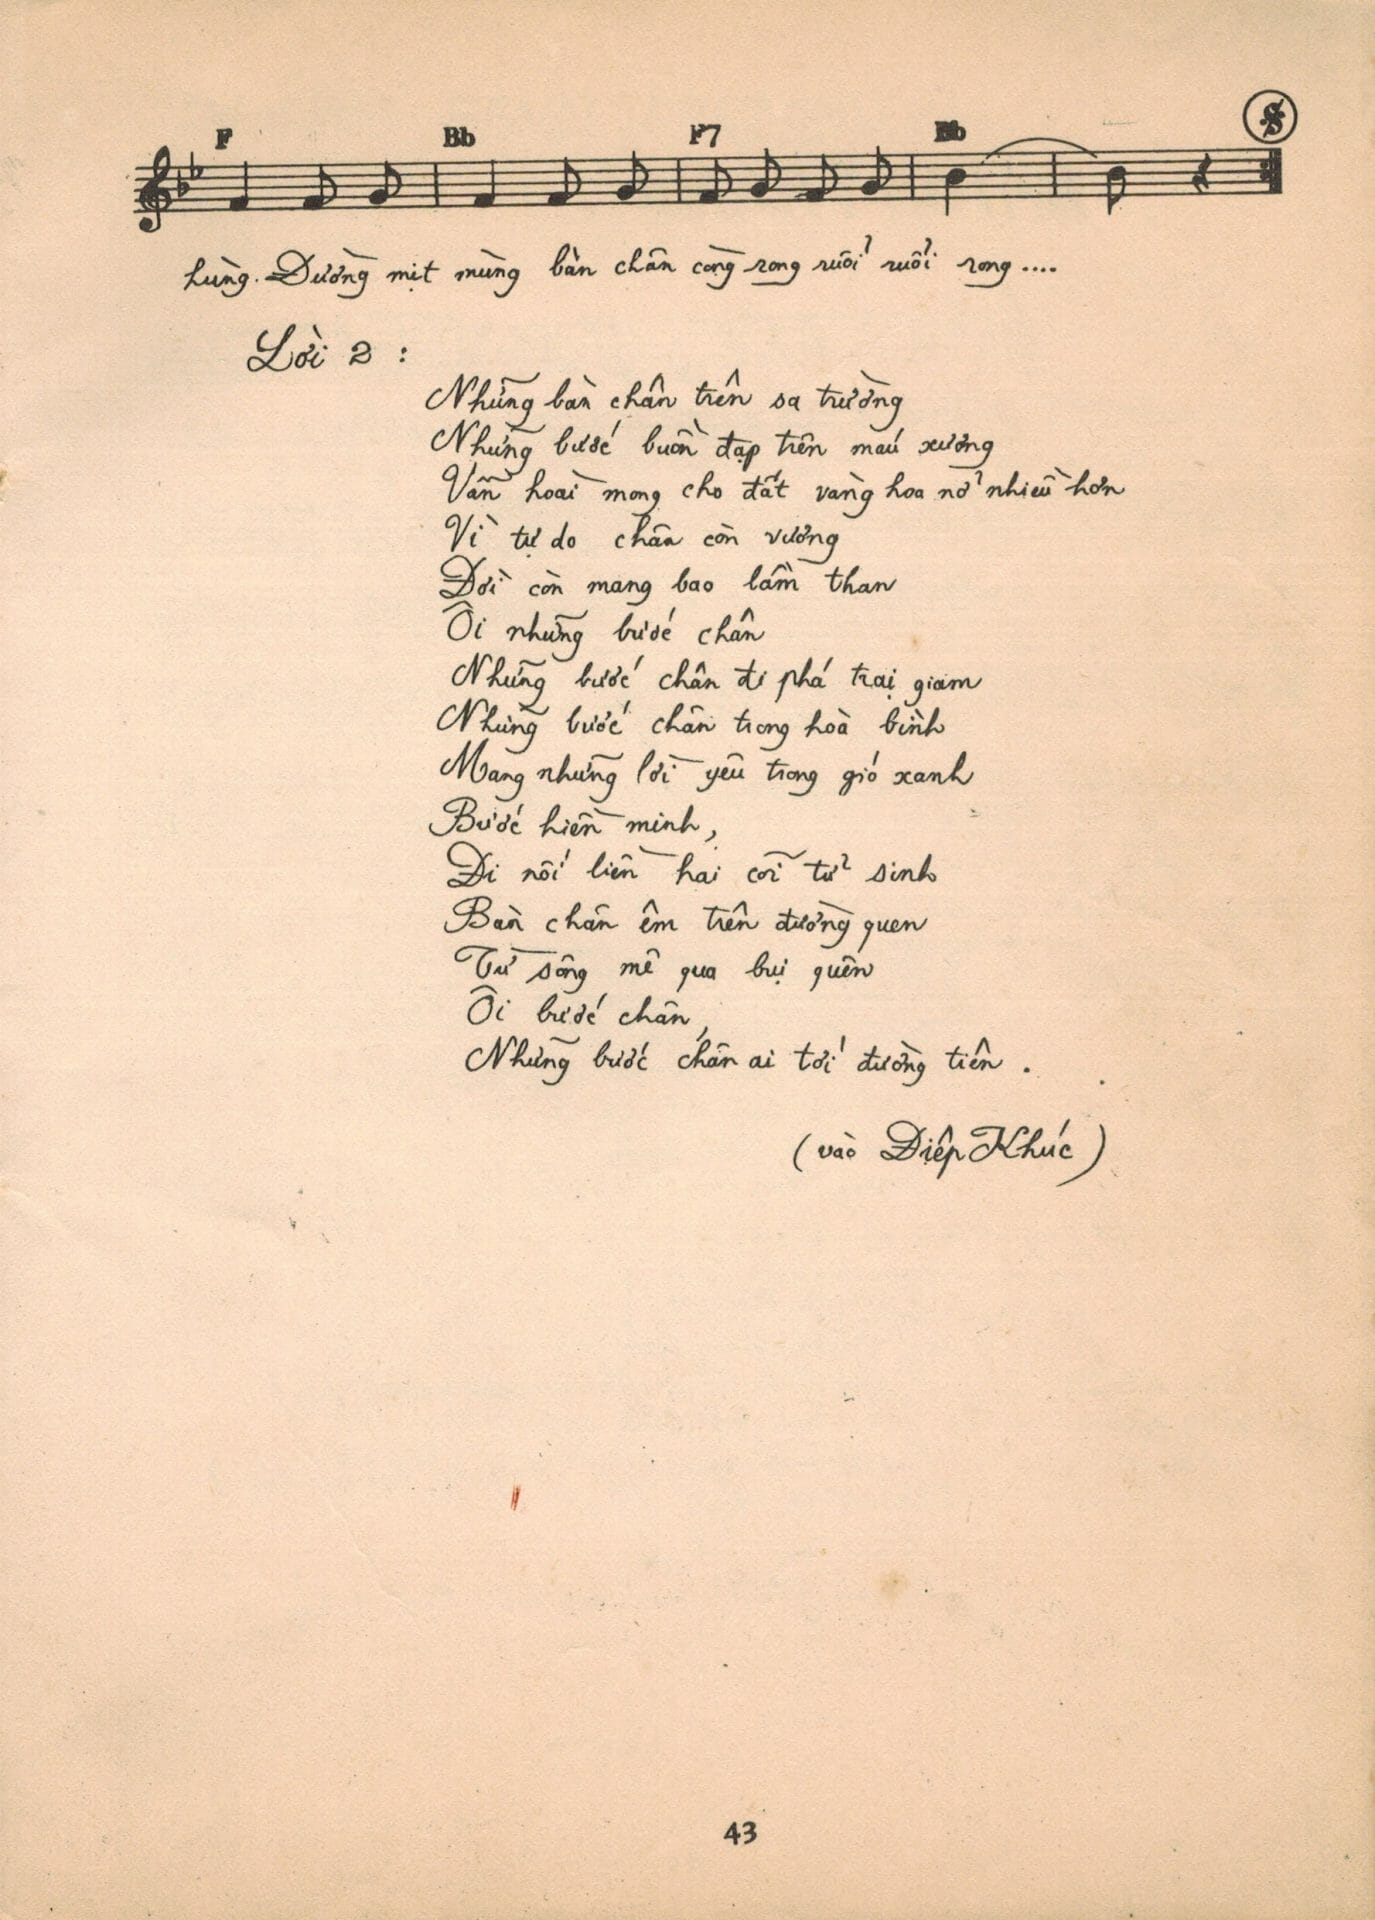 F Bb F7 Bb
hùng. Đường mịt mùng bàn chân còng rong ruổi ruổi rong ....
Lời 2 :
Những bàn chân trên sa trường
Những bước buồn đạp trên máu xương
Vẫn hoài mong cho đất vàng hoa nở nhiều hơn
Vì tự do chân còn vương
Đời còn mang bao lầm than
Ôi những bước chân
Những bước chân đi phá trại giam
Những bước chân trong hoà bình
Mang những lời yêu trong gió xanh
Bước hiền minh,
Đi nối liền hai cõi tử sinh
Bàn chân êm trên đường quen
Từ sông mê qua bụi quên
Ôi bước chân,
Những bước chân ai tới đường tiên .
(vào Điệp Khúc)
43